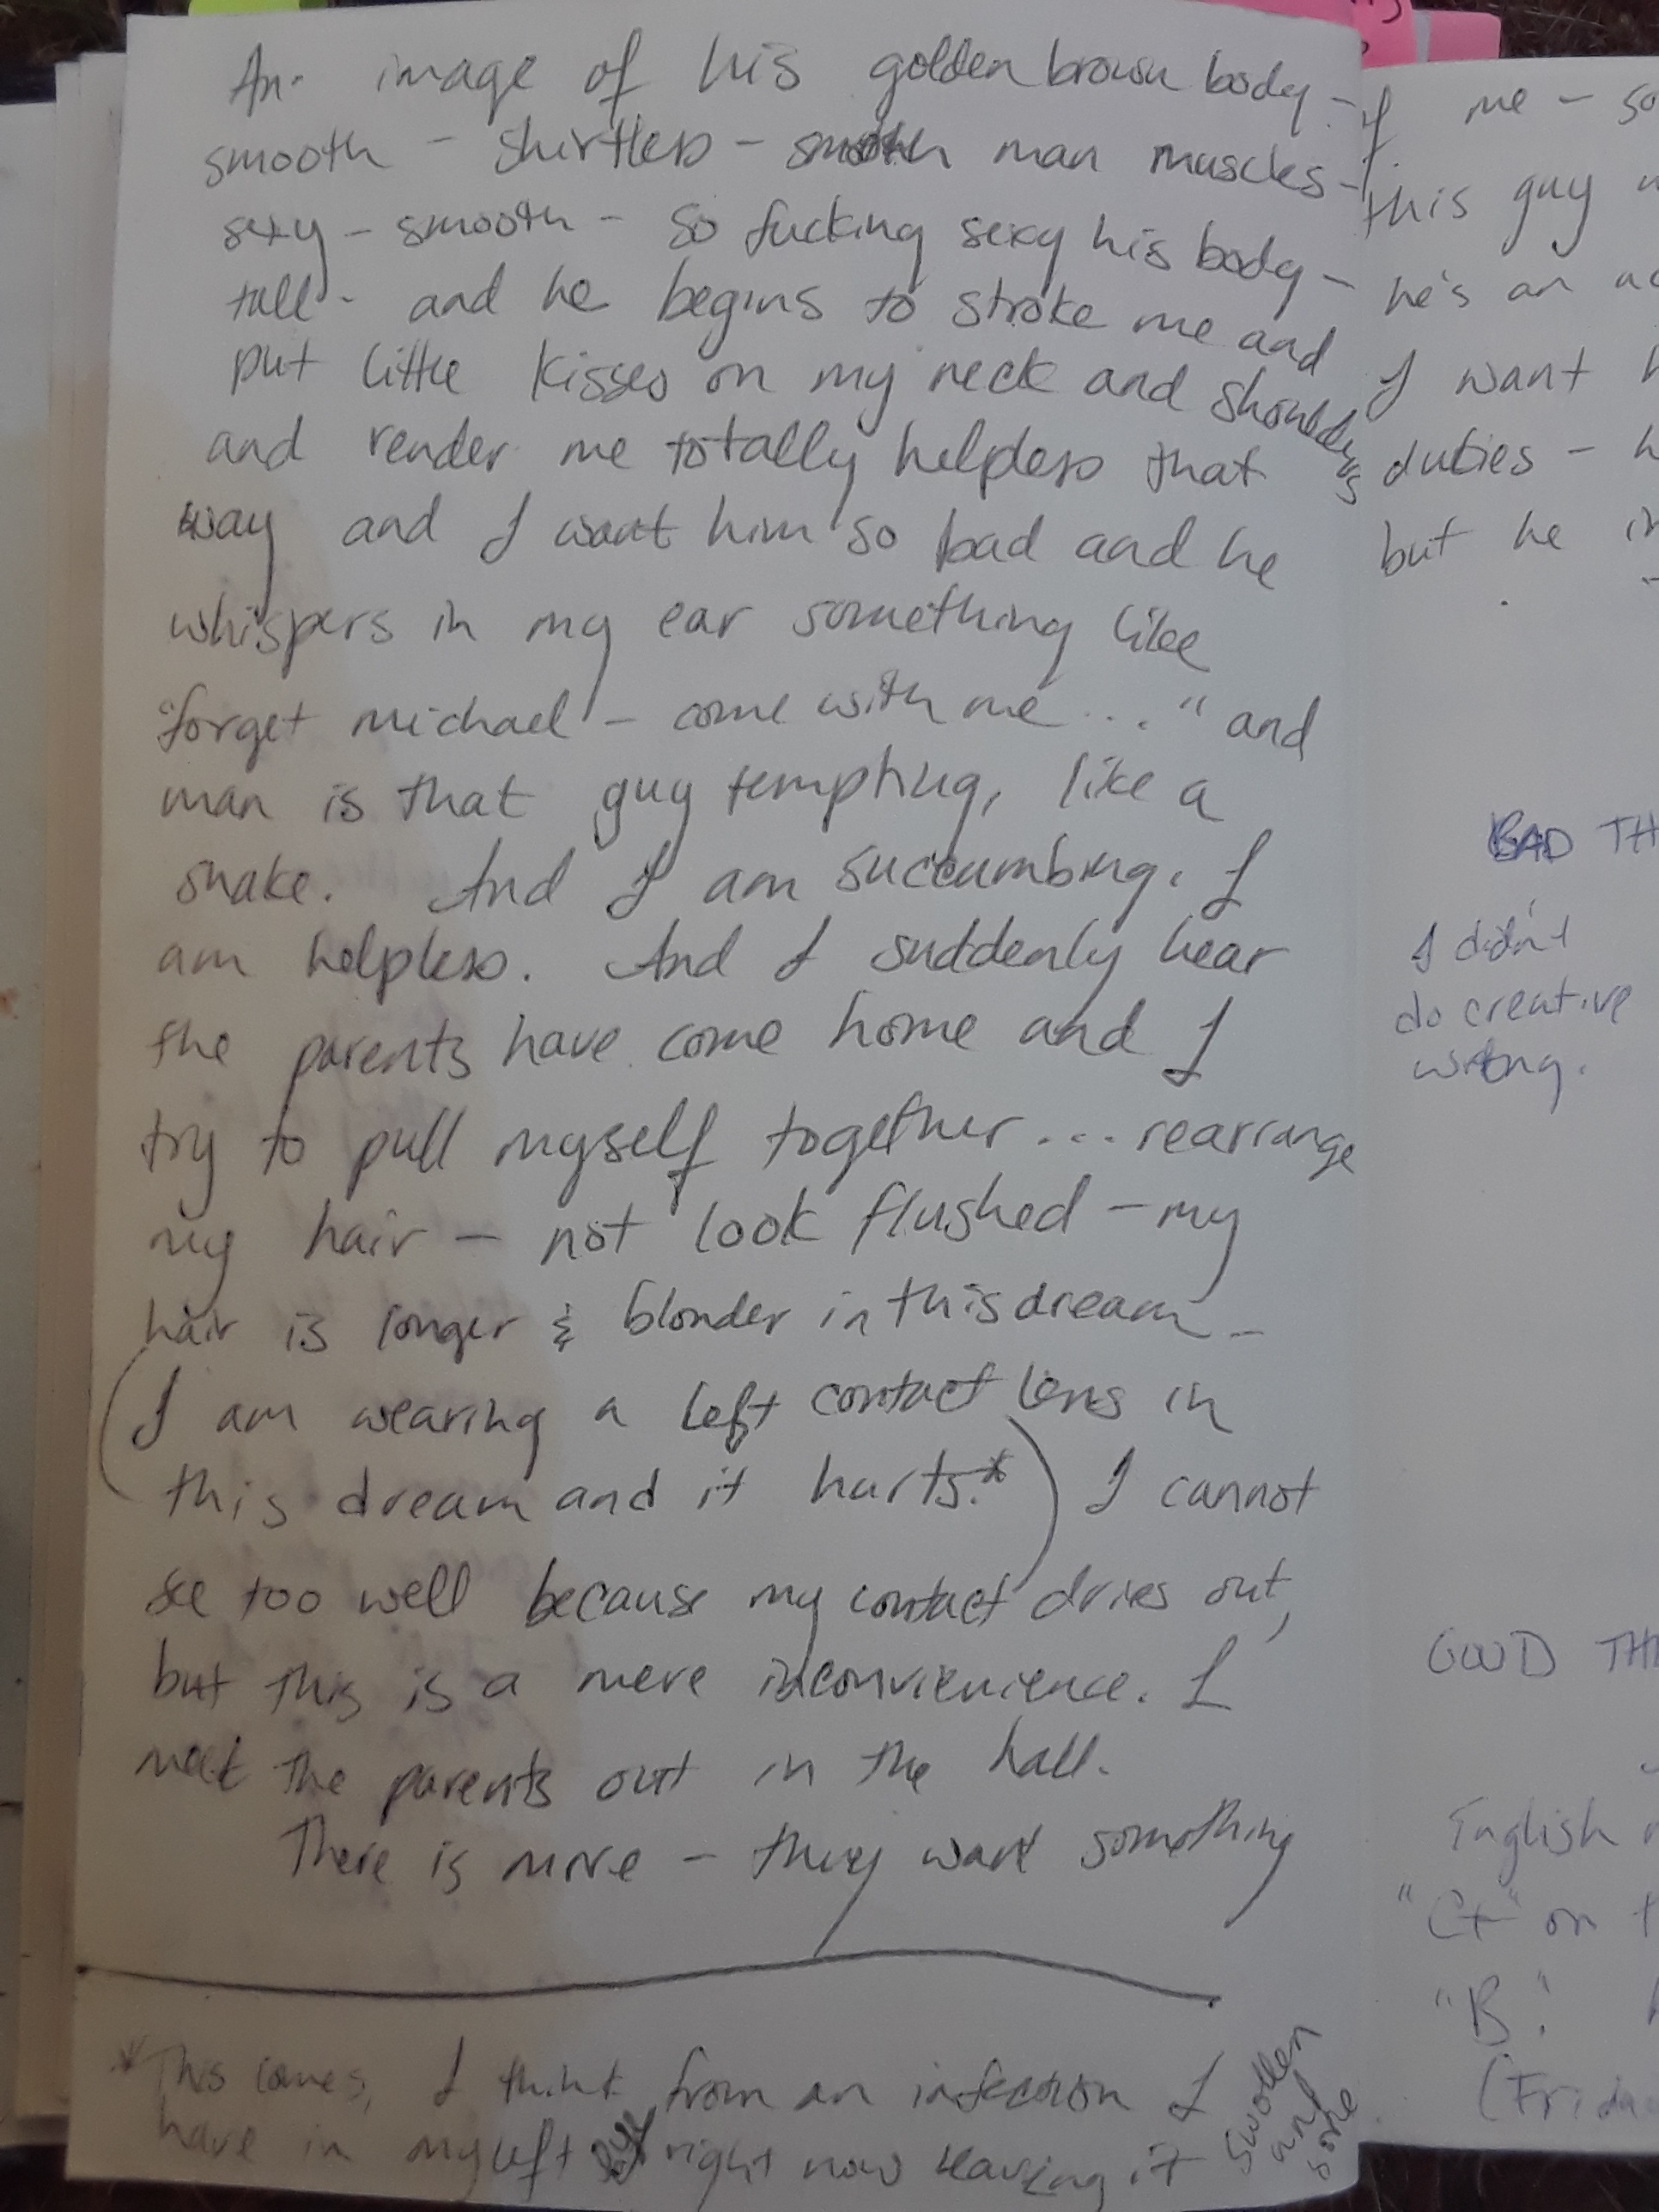 An image of his golden brown body -
smooth - shirtless - smooth man muscles -
sexy - smooth - so fucking sexy his body -
tall - and he begins to stroke me and
put little kisses on my neck and shoulders
and render me totally helpless that
way and I want him so bad and he
whispers in my ear something like
"forget michael - come with me..." and
man is that guy tempting, like a
snake. And I am succumbing. I
am helpless. And I suddenly hear
the parents have come home and I
try to pull myself together... rearrange
my hair - not look flushed - my
hair is longer & blonder in this dream -
(I am wearing a left contact lens in
this dream and it hurts.*) I cannot
see too well because my contact dries out,
but this is a mere inconvienience. I
meet the parents out in the hall.
There is more - they want something
*This comes, I think from an infection I
have in my left eye right now leaving it swollen and sore
me - so
this guy
he's an
I want
duties -
but he
BAD
I didn't
do creative
writing.
GOOD
English
"C+" on
"B."